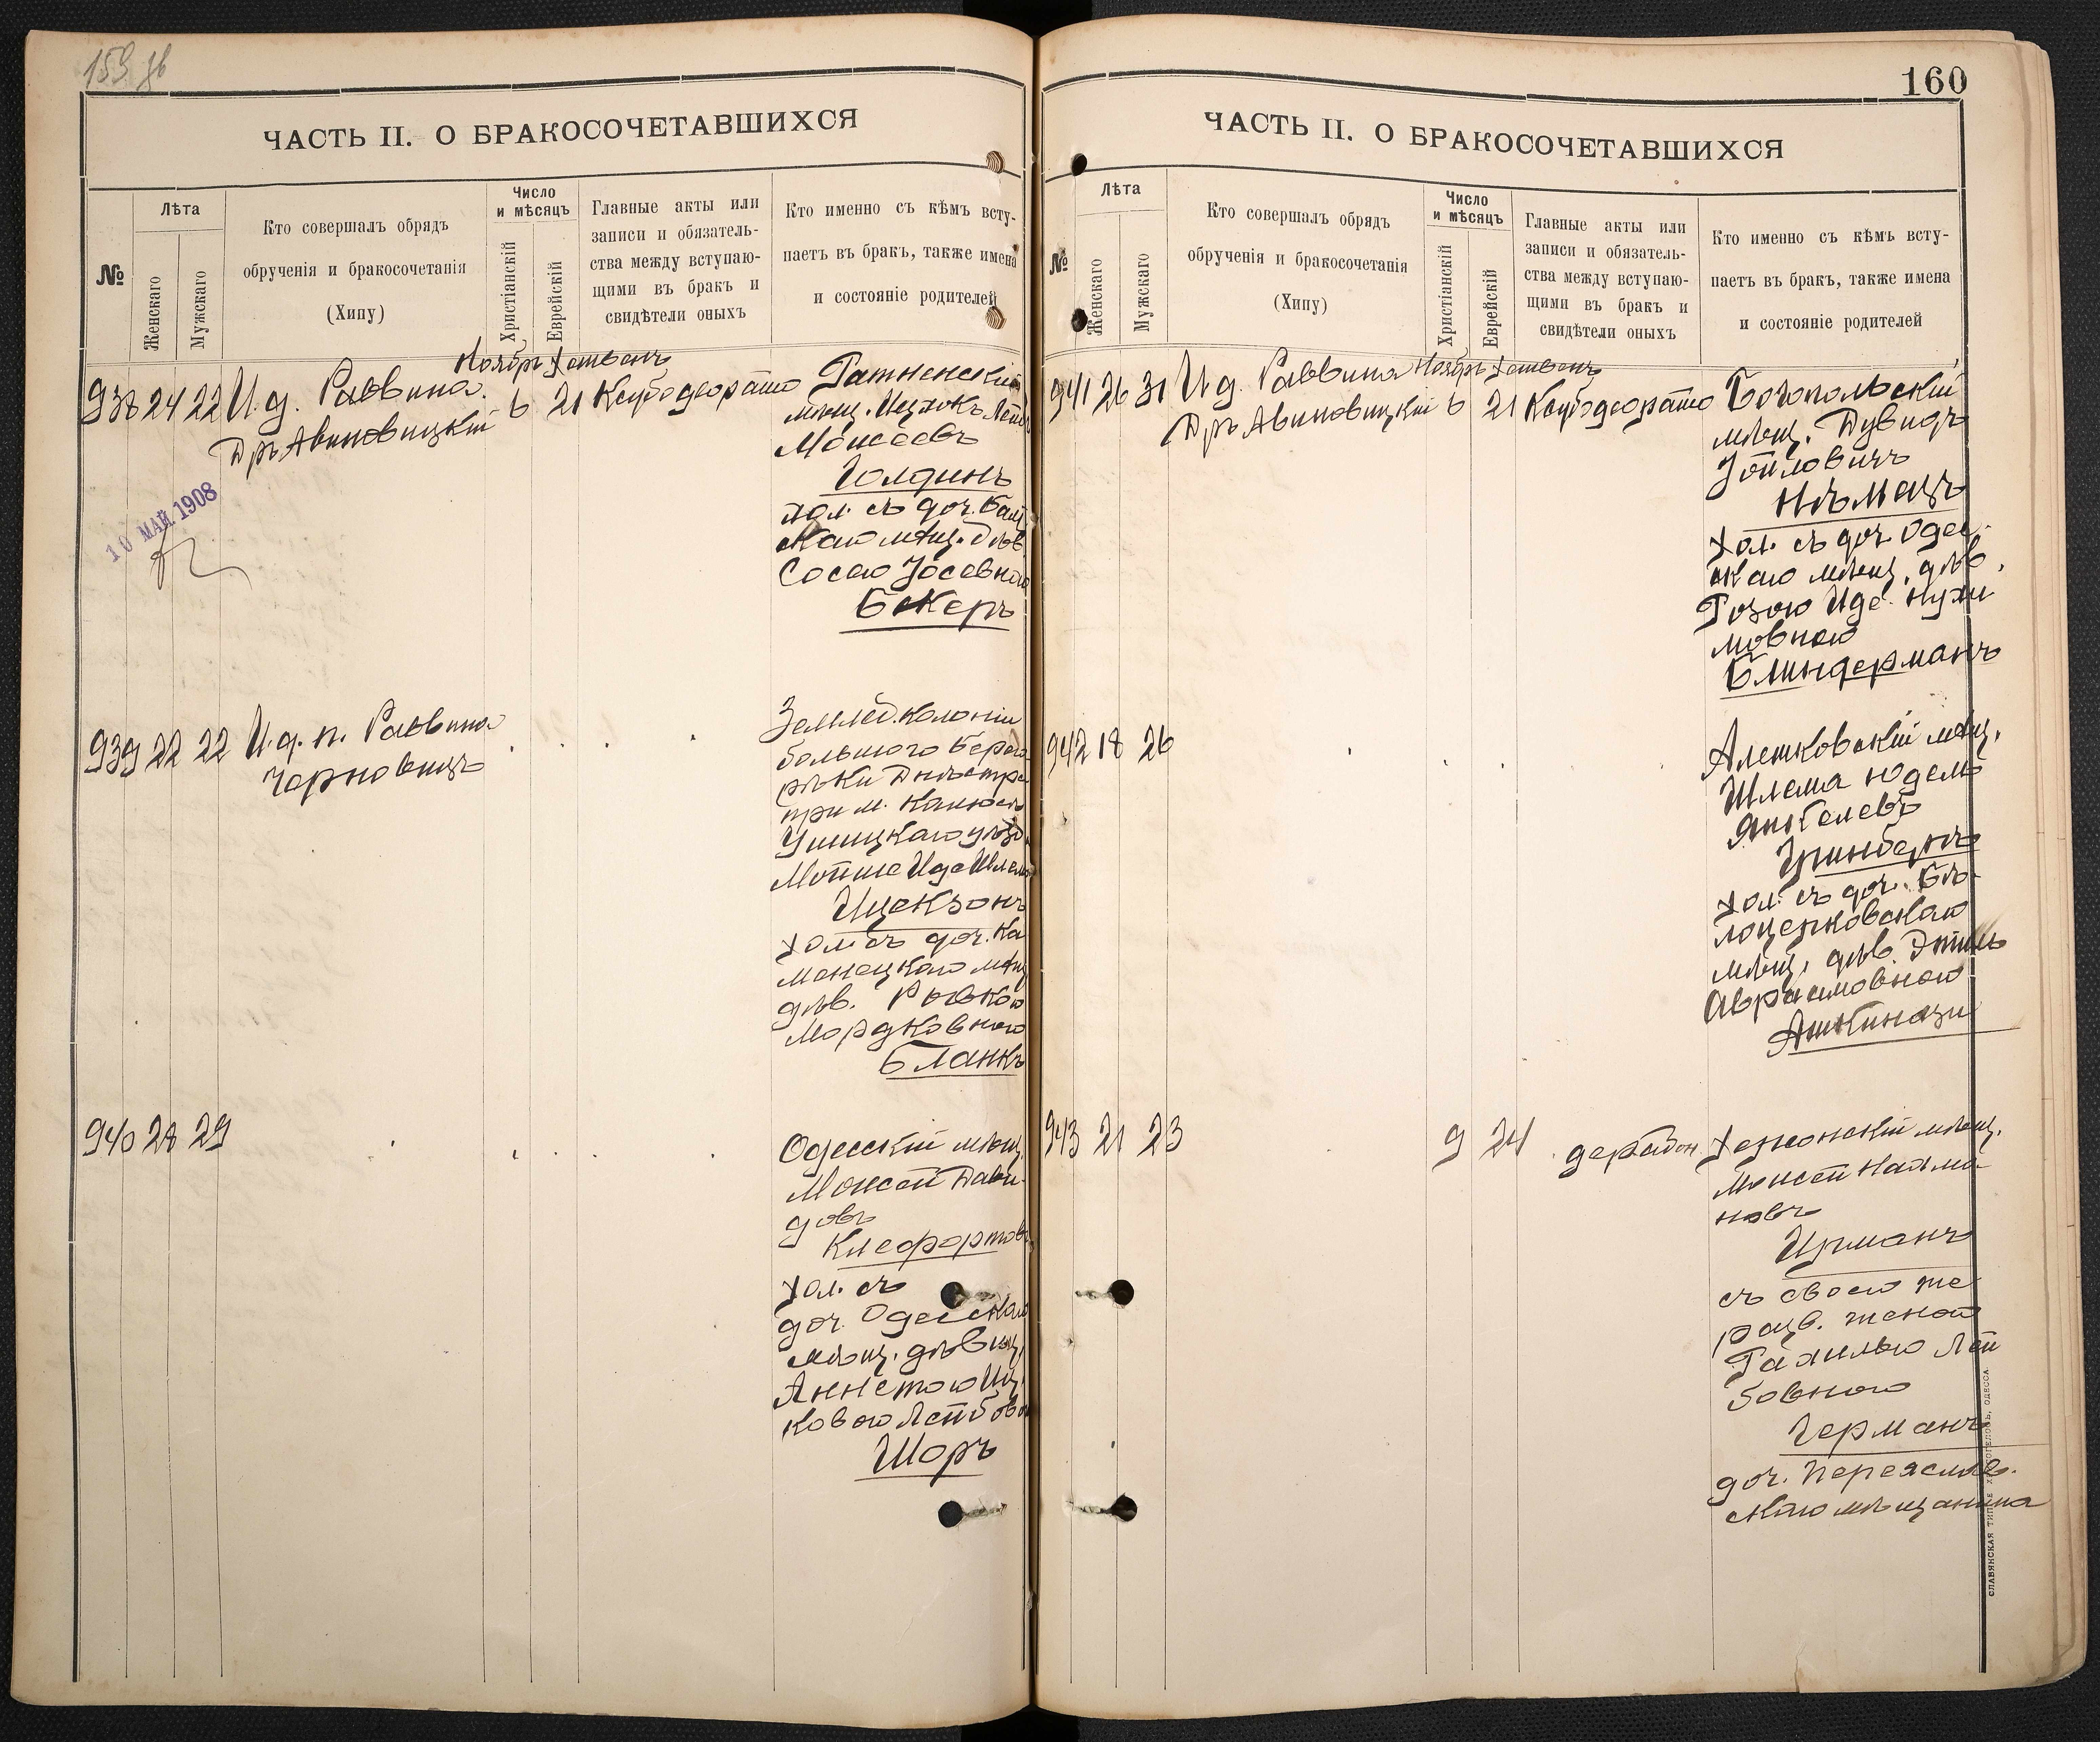 ЧАСТЬ II. О БРАКОСОЧЕТАВШИХСЯ
№
Лѣта
Женскаго
Мужскаго
Кто совершалъ обрядъ
обрученія и бракосочетанія
(Хипу)
Число
и мѣсяцъ
Христіанскій
Еврейскій
Главные акты или
записи и обязатель-
ства между вступаю-
щими въ бракъ и
свидѣтели оныхъ
Кто именно съ кѣмъ всту-
паетъ въ бракъ, также имена
и состояніе родителей
Ноябрь Хешванъ
938 24 22 И.д. Раввина
Дръ Авиновицкій
6 21
Ратненскій
мѣщ. Ицхокъ
Моисеевъ
Голдинъ
хол. съ доч.
мѣщ.
Сосею Іосевною
Бекеръ
10 МАЙ 1908
939 22 22 И.д.п. Раввина
Черновицъ
Землед. колоніи
большого Берега
рѣки Днѣстра
при м.
Ушицкаго уѣзда
Мойше Иде
Ицекзонъ
хол. съ доч. Ка
менецкаго мѣщ
дѣв. Ривкою
Мордковною
Бланкъ
940 28 29
Одесскій мѣщ.
Моисей Дави-
довъ
хол. съ
доч. Одесскаго
мѣщ. дѣвиц.
Аннетою
Шоръ
160
ЧАСТЬ II. О БРАКОСОЧЕТАВШИХСЯ
№
Лѣта
Женскаго
Мужскаго
Кто совершалъ обрядъ
обрученія и бракосочетанія
(Хипу)
Число
и мѣсяцъ
Христіанскій
Еврейскій
Главные акты или
записи и обязатель-
ства между вступаю-
щими въ бракъ и
свидѣтели оныхъ
Кто именно съ кѣмъ всту-
паетъ въ бракъ, также имена
и состояніе родителей
Ноябрь Хешванъ
941 26 31 И.д. Раввина
Дръ Авиновицкій
6 21
Богопольскій
мѣщ. Дувидъ
Іойловичъ
Нѣмецъ
хол. съ доч. Одес-
скаго мѣщ. дѣв.
Розою Иде Нухи
мовною
Блиндерманъ
942 18 26
Алешковскій мѣщ.
Шлема Юдель
Янкелевъ
Гринбергъ
хол. съ доч. Бѣ-
лоцерковскаго
мѣщ. дѣв. Этиль
Авраамовною
Ашкинази
943 21 23
9 24
Херсонскій мѣщ.
Моисей Нахма-
новъ
съ своею же
разв. женой
Рахилью Лей
бовною
Германъ
доч. Переяслав.
скаго мѣщанина
СЛАВЯНСКАЯ ТИП.
ОДЕССА